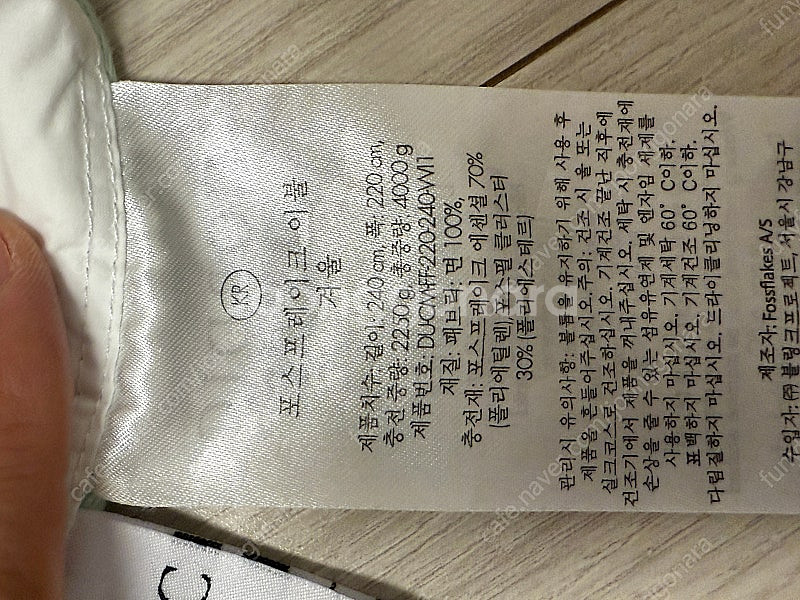 KR
포스프레이크 이불
겨울
제품치수: 길이, 240 cm, 폭: 220 cm,
충전 중량: 2230 g, 총중량: 4000 g
제품번호: DUCWFF-220240-WI1
재질: 패브릭: 면 100%,
충전재: 포스프레이크 에센셜 70%
(폴리에틸렌), 포스필 클러스터
30% (폴리에스테르)
관리시 유의사항: 볼륨을 유지하기 위해 사용 후
제품을 흔들어주십시오. 주의: 건조 시 울 또는
실크코스로 건조하십시오. 기계건조 끝난 직후에
건조기에서 제품을 꺼내주십시오. 세탁 시 충전재에
손상을 줄 수 있는 섬유유연제 및 엔자임 세제를
사용하지 마십시오. 기계세탁 60° C이하.
표백하지 마십시오. 기계건조 60° C이하.
다림질하지 마십시오. 드라이클리닝하지 마십시오.
제조자: Fossflakes A/S
수입자: ㈜ 블링크프로젝트, 서울시 강남구
C